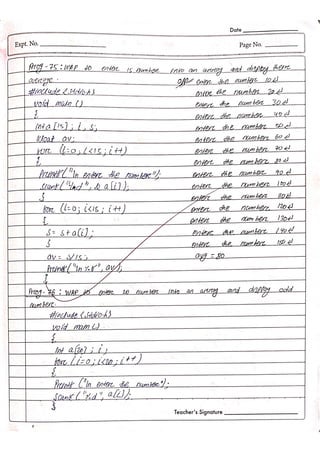 Date
Expt. No.
Page No.
Prog - 75 : WAP to enter 15 number into an array and display there
average.
O/P enter the number 10
#include <stdio.h>
enter the number 20
void main ()
enter the number 30
{
enter the number 40
int a[15]; i, s;
enter the number 50
float av;
enter the number 60
for (i=0; i<15; i++)
enter the number 70
{
enter the number 80
Printf("\n enter the number");
enter the number 90
scanf("%d", & a[i]);
enter the number 100
}
enter the number
for (i=0; i<15; i++)
enter the number
{
enter the number 130
s = s+a[i];
enter the number 140
}
enter the number 150
av = s/15;
avg = 80
Printf("\n %f", av);
}
Prog - 76 : WAP to enter 20 number into an array and display odd
number.
#include <stdio.h>
void main()
{
int a[20]; i;
for (i=0; i<20; i++)
{
Printf ("\n enter the number");
scanf ("%d", a[i]);
}
Teacher's Signature